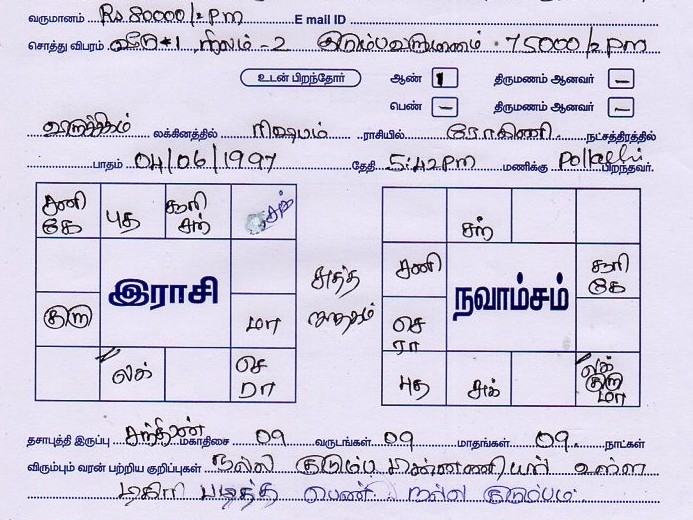 வருமானம் Rs. 80000/= PM E mail ID
சொத்து விபரம் வீடு*1, நிலம் -2 குடும்பவருமானம். 75000/= PM
உடன் பிறந்தோர் ஆண் 1 திருமணம் ஆனவர் -
பெண் - திருமணம் ஆனவர் -
லக்கினத்தில் ரிஷபம் ராசியில் ரோகிணி நட்சத்திரத்தில்
பாதம் 04/06/1997 தேதி 5:42 PM மணிக்கு பிறந்தவர்.
சனி கே புத சூரி சந்
குரு இராசி மா
லக் செ ரா
சுத்த ஜாதகம்
சந்
சனி நவாம்சம் சூரி கே
செ ரா
புத சுக் லக் குரு மா
தசாபுத்தி இருப்பு சந்திரன் மகாதிசை 09 வருடங்கள் 09 மாதங்கள் 09 நாட்கள்
விரும்பும் வரன் பற்றிய குறிப்புகள் நல்ல குடும்ப பின்னணியில் உள்ள
டிகிரி படித்த பெண். நல்ல குடும்பம்